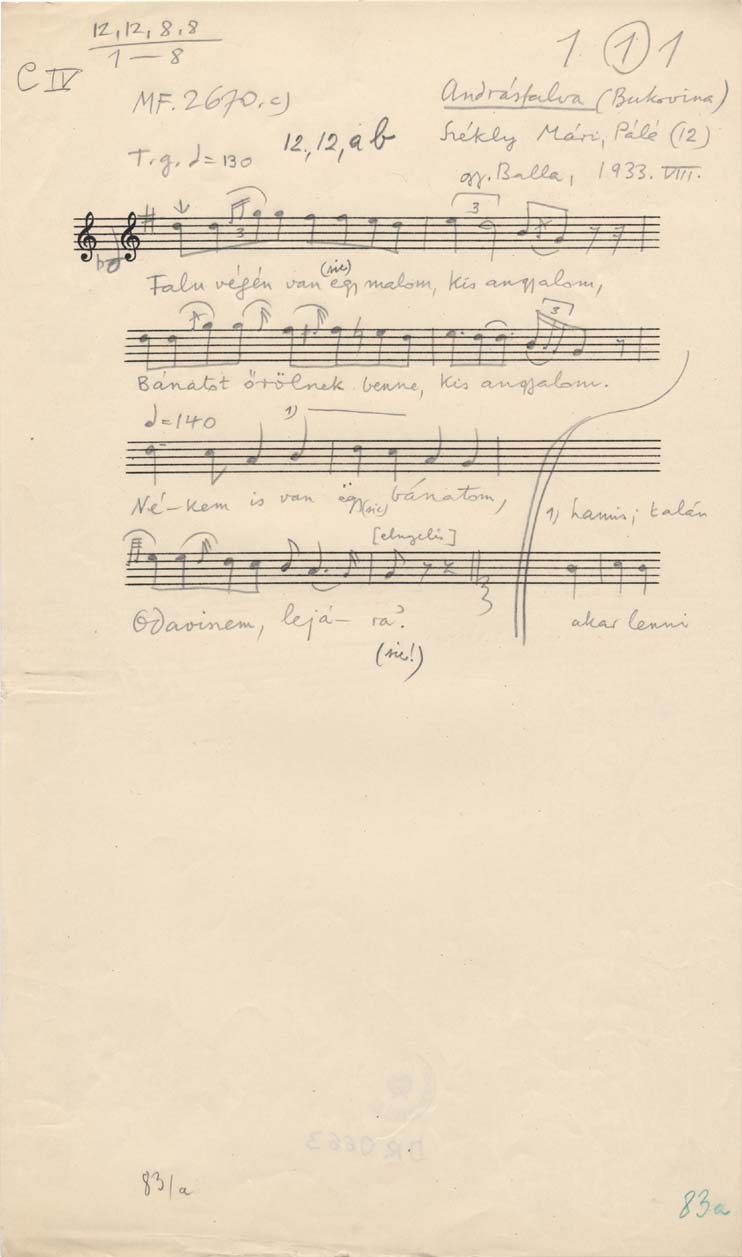 12, 12, 8, 8
1 — 8
C IV
1 1 1
MF. 2670. c)
Andrásfalva (Bukovina)
12, 12, a b
Székly Mári, Pálé (12)
T. g. = 130
gy. Balla, 1933. VIII.
3
3
(sic)
Falu végén van egy malom, kis angyalom,
3
Bánatot őrölnek benne, kis angyalom.
= 140
1)
Né-kem is van egy (sic) bánatom,
1) hamis; talán
Odavinem, lejá- ra?
akar lenni
(sic!)
DR 0663
83/a
83a